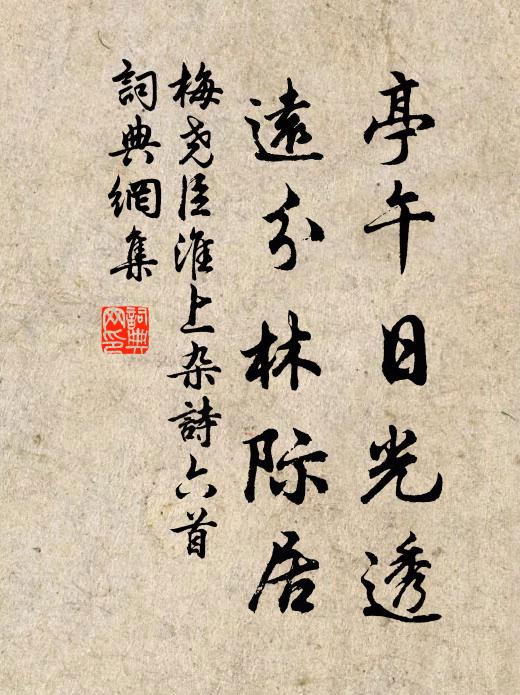 亭午日光透
遠分林际居
梅尧臣淮上杂詩六首
詞典網集
詞典网印